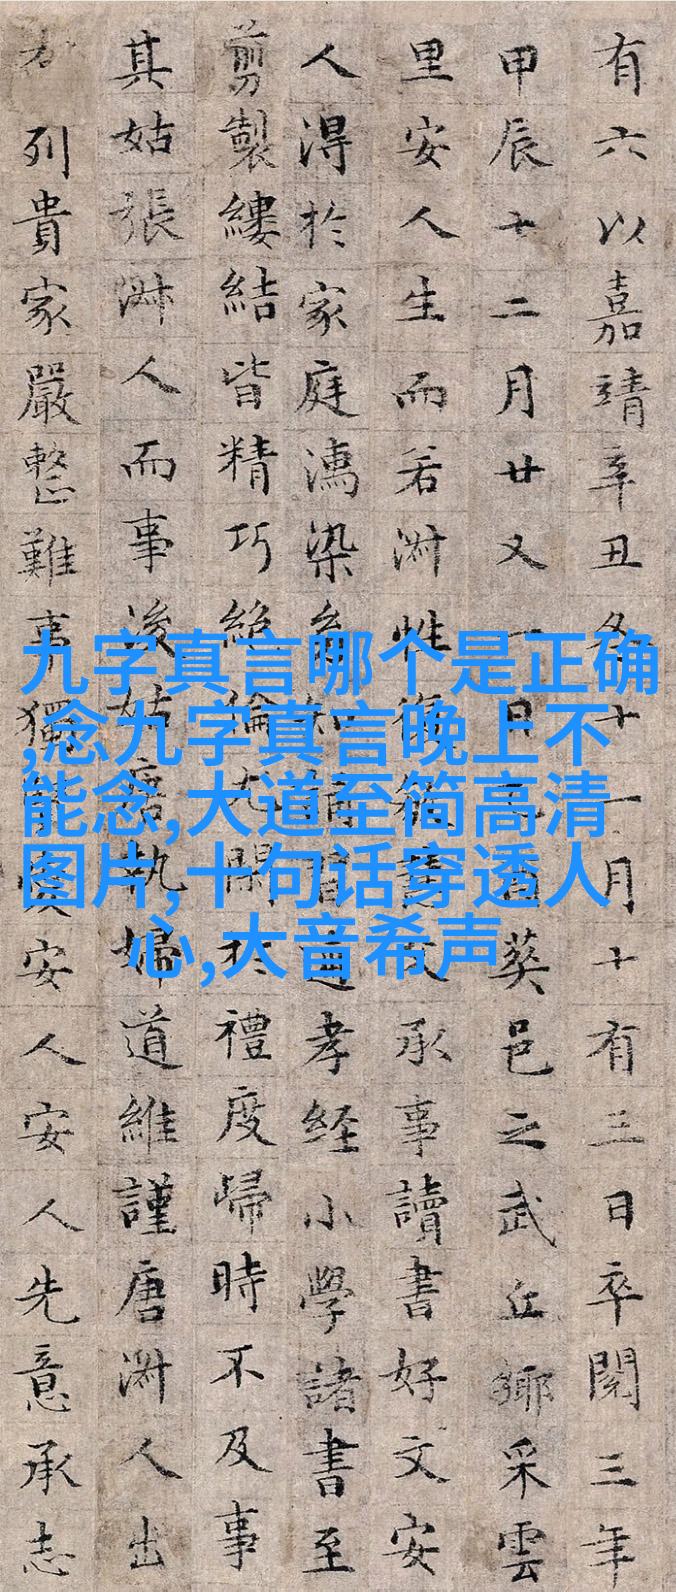 有六以嘉靖辛丑冬十一月十有三日卒閱三年
甲辰十二月廿又一日酉葬邑之武丘鄉采雲
里安人生而若淑性復承事讀書好文安
人得於家庭濡染知道孝経小學諸書至
剪製縷結皆精巧絶倫尤閑於禮度歸時不及事
其姑張淑人而事後姑唐執婦道維謹唐淑人出
列貴家嚴整難事獨安人安人先意承志
九字真言哪个是正确
,念九字真言晚上不
能念,大道至简高清
图片,十句话穿透人
心,大音希声